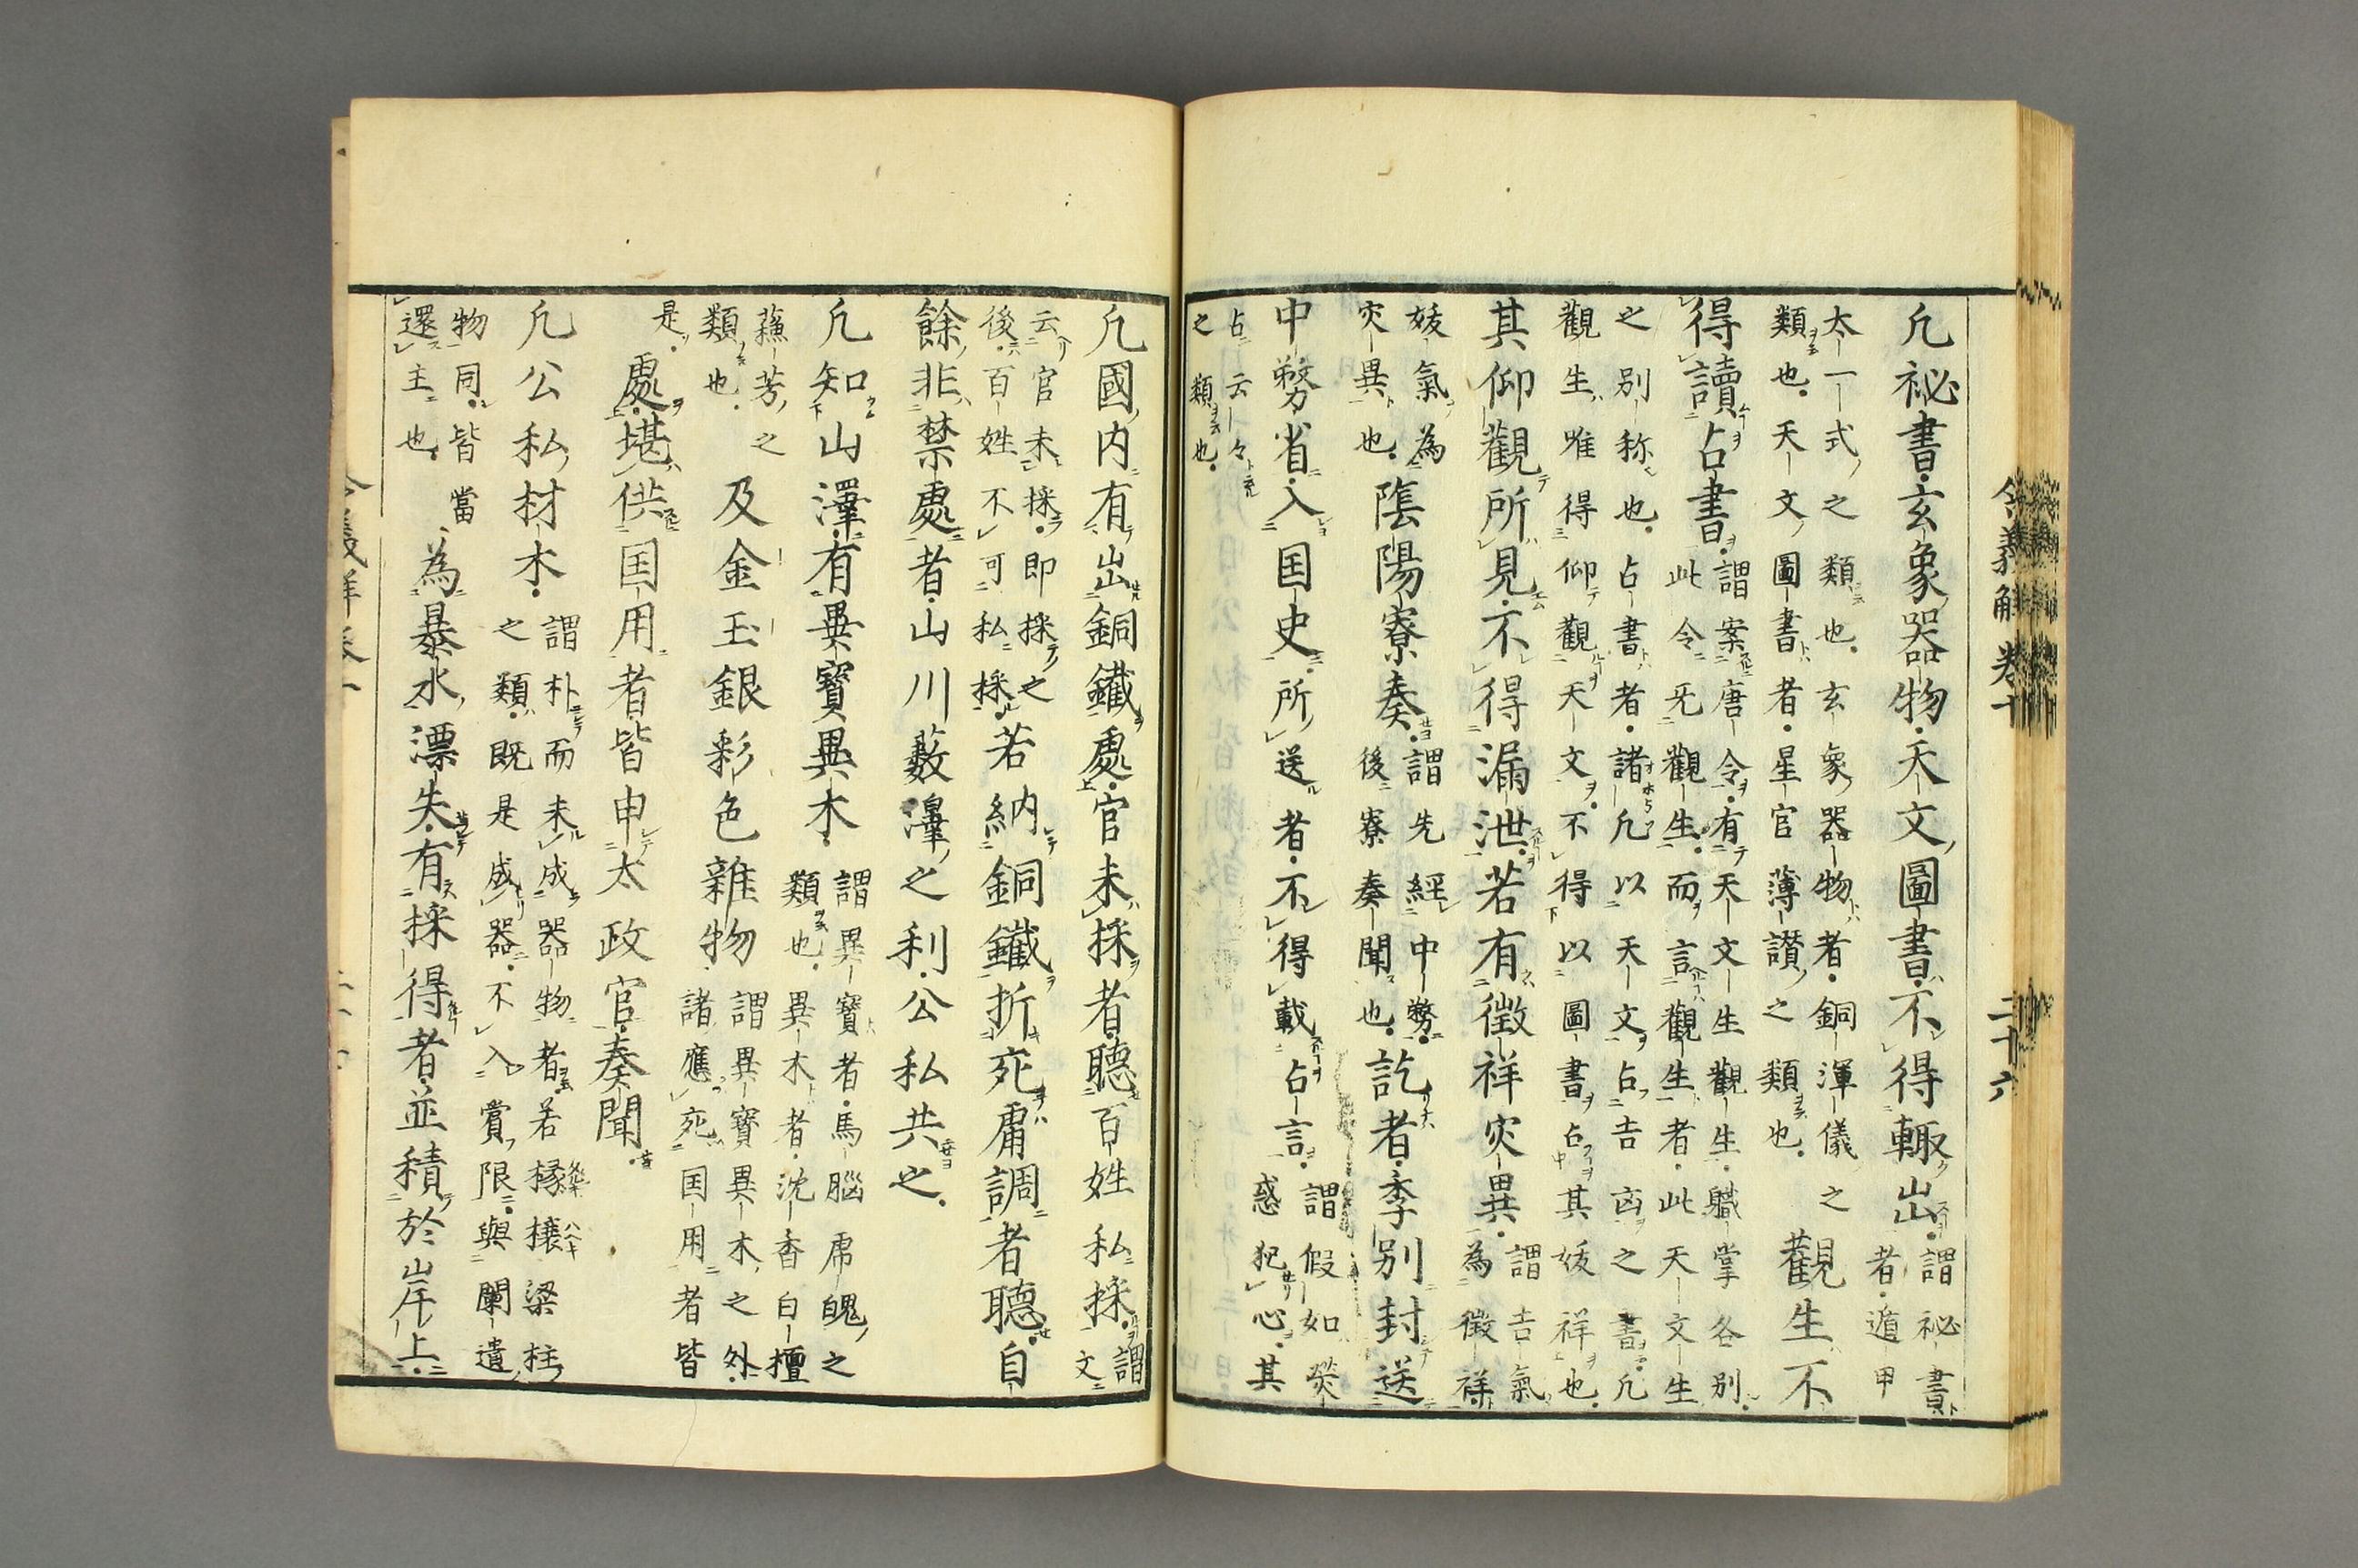 令義解 卷十 二十六
凡祕書玄象器物天文圖書不得輙出謂祕書者遁甲
太一式之類也玄象器物者銅渾儀之類也天文圖書者星官薄讃之類也觀生不
得讀占書謂案唐令有天文生觀生軄掌各別此令无觀生而言觀生者此天文生
之別称也占書者諸凡以天文占吉凶之書凡觀生唯得仰觀天文不得以圖書占其妖祥也
其仰觀所見不得漏泄若有徴祥灾異謂吉氣為徴祥
妖氣為灾異也隂陽寮奏謂先經中務後寮奏聞也訖者季別封送
中務省入国史所送者不得載占言謂假如熒惑犯心其
占云々之類也
凡國内有出銅鐵處官未採者聽百姓私採謂文
云官未採即採之後百姓不可私採若納銅鐵折充庸調者聽自
餘非禁處者山川藪澤之利公私共之
凡知山澤有異寶異木謂異寶者馬腦虎魄之類也異木者沈香白檀
蘓芳之類也及金玉銀彩色雜物謂異寶異木之外諸應充国用者皆
是處堪供国用者皆申太政官奏聞
凡公私材木謂朴而未成器物者若椽榱梁柱之類既是成器不入賞限與闌遺
物同皆當還主也為暴水漂失有採得者並積於岸上